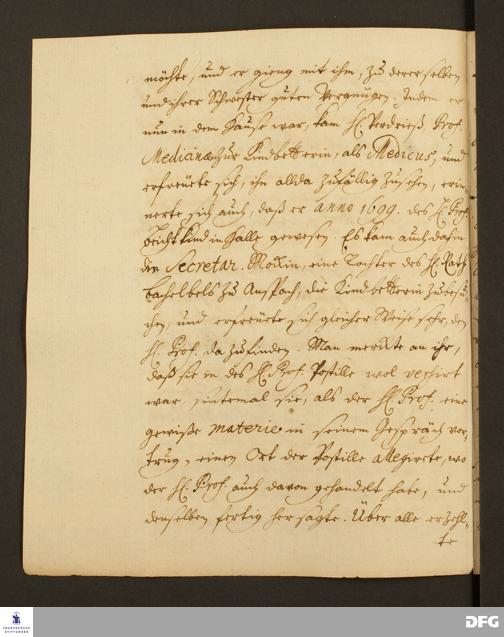 möchte, und er gieng mit ihm, zu derer selben
und ihrer Schwester guten Vergnügen. Indem er
nun in dem Hause war, kam H. Verdrieß, Prof.
Medicinae zur Kindbetterin, als Medicus, und
erfreuete sich, ihn allda zufällig zu sehen, erin-
nerte sich auch, daß er anno 1699. des H. Prof.
Beicht Kind in Halle gewesen. Es kam auch dahin
die Secretar. Modin, eine Tochter des H. Rath
Bachelbels zu Anspach, die Kindbetterin zu besu-
chen, und erfreuete sich gleicher Weise sehr, den
H. Prof. da zu finden. Man merkte an ihr,
daß sie in des H. Prof. Postille wol versirt
war, sintemal sie, als der H. Prof. eine
gewiße materie in seinem Gespräch vor-
trug, einen Ort der Postille allegirete, wo
der H. Prof. auch davon gehandelt habe, und
denselben fertig hersagte. Über alle erzehl-
te
FRANCKESCHE
STIFTUNGEN
DFG